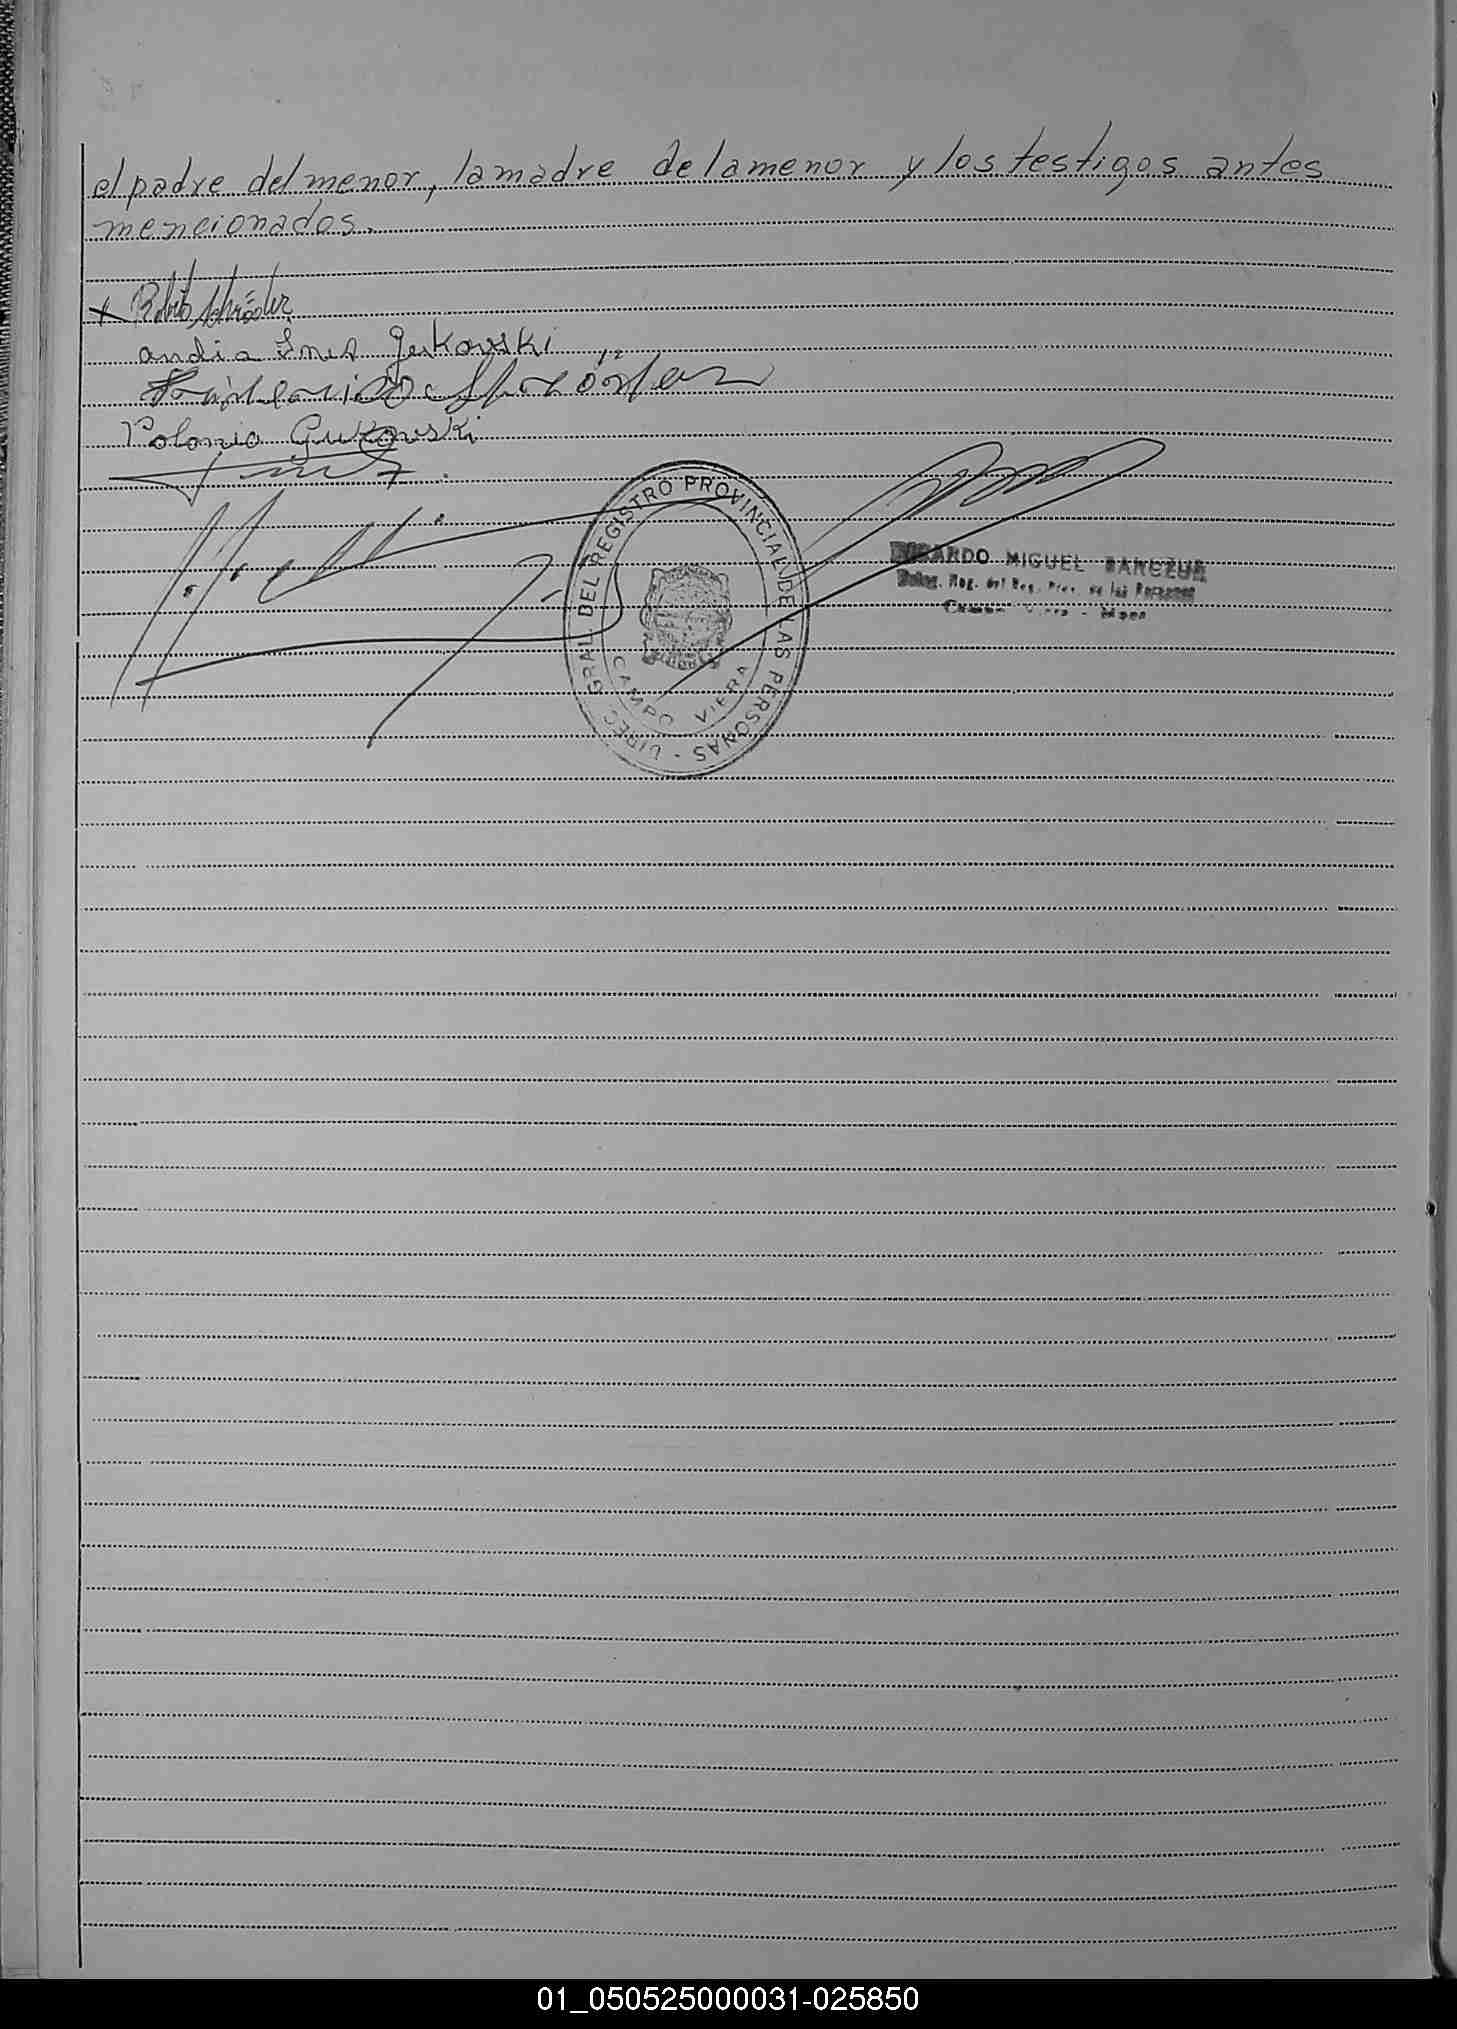 el padre del menor, la madre de la menor y los testigos antes
mencionados.
x Roberto Schröder
andia Ines Gukowski
Polonia Gukowski
DIREC. GRAL. DEL REGISTRO PROVINCIAL DE LAS PERSONAS -
CAMPO VIERA
RICARDO MIGUEL BARCZUK
Reg. del Reg. Prov. de las Personas
Campo Viera - Mnes
01_050525000031-025850